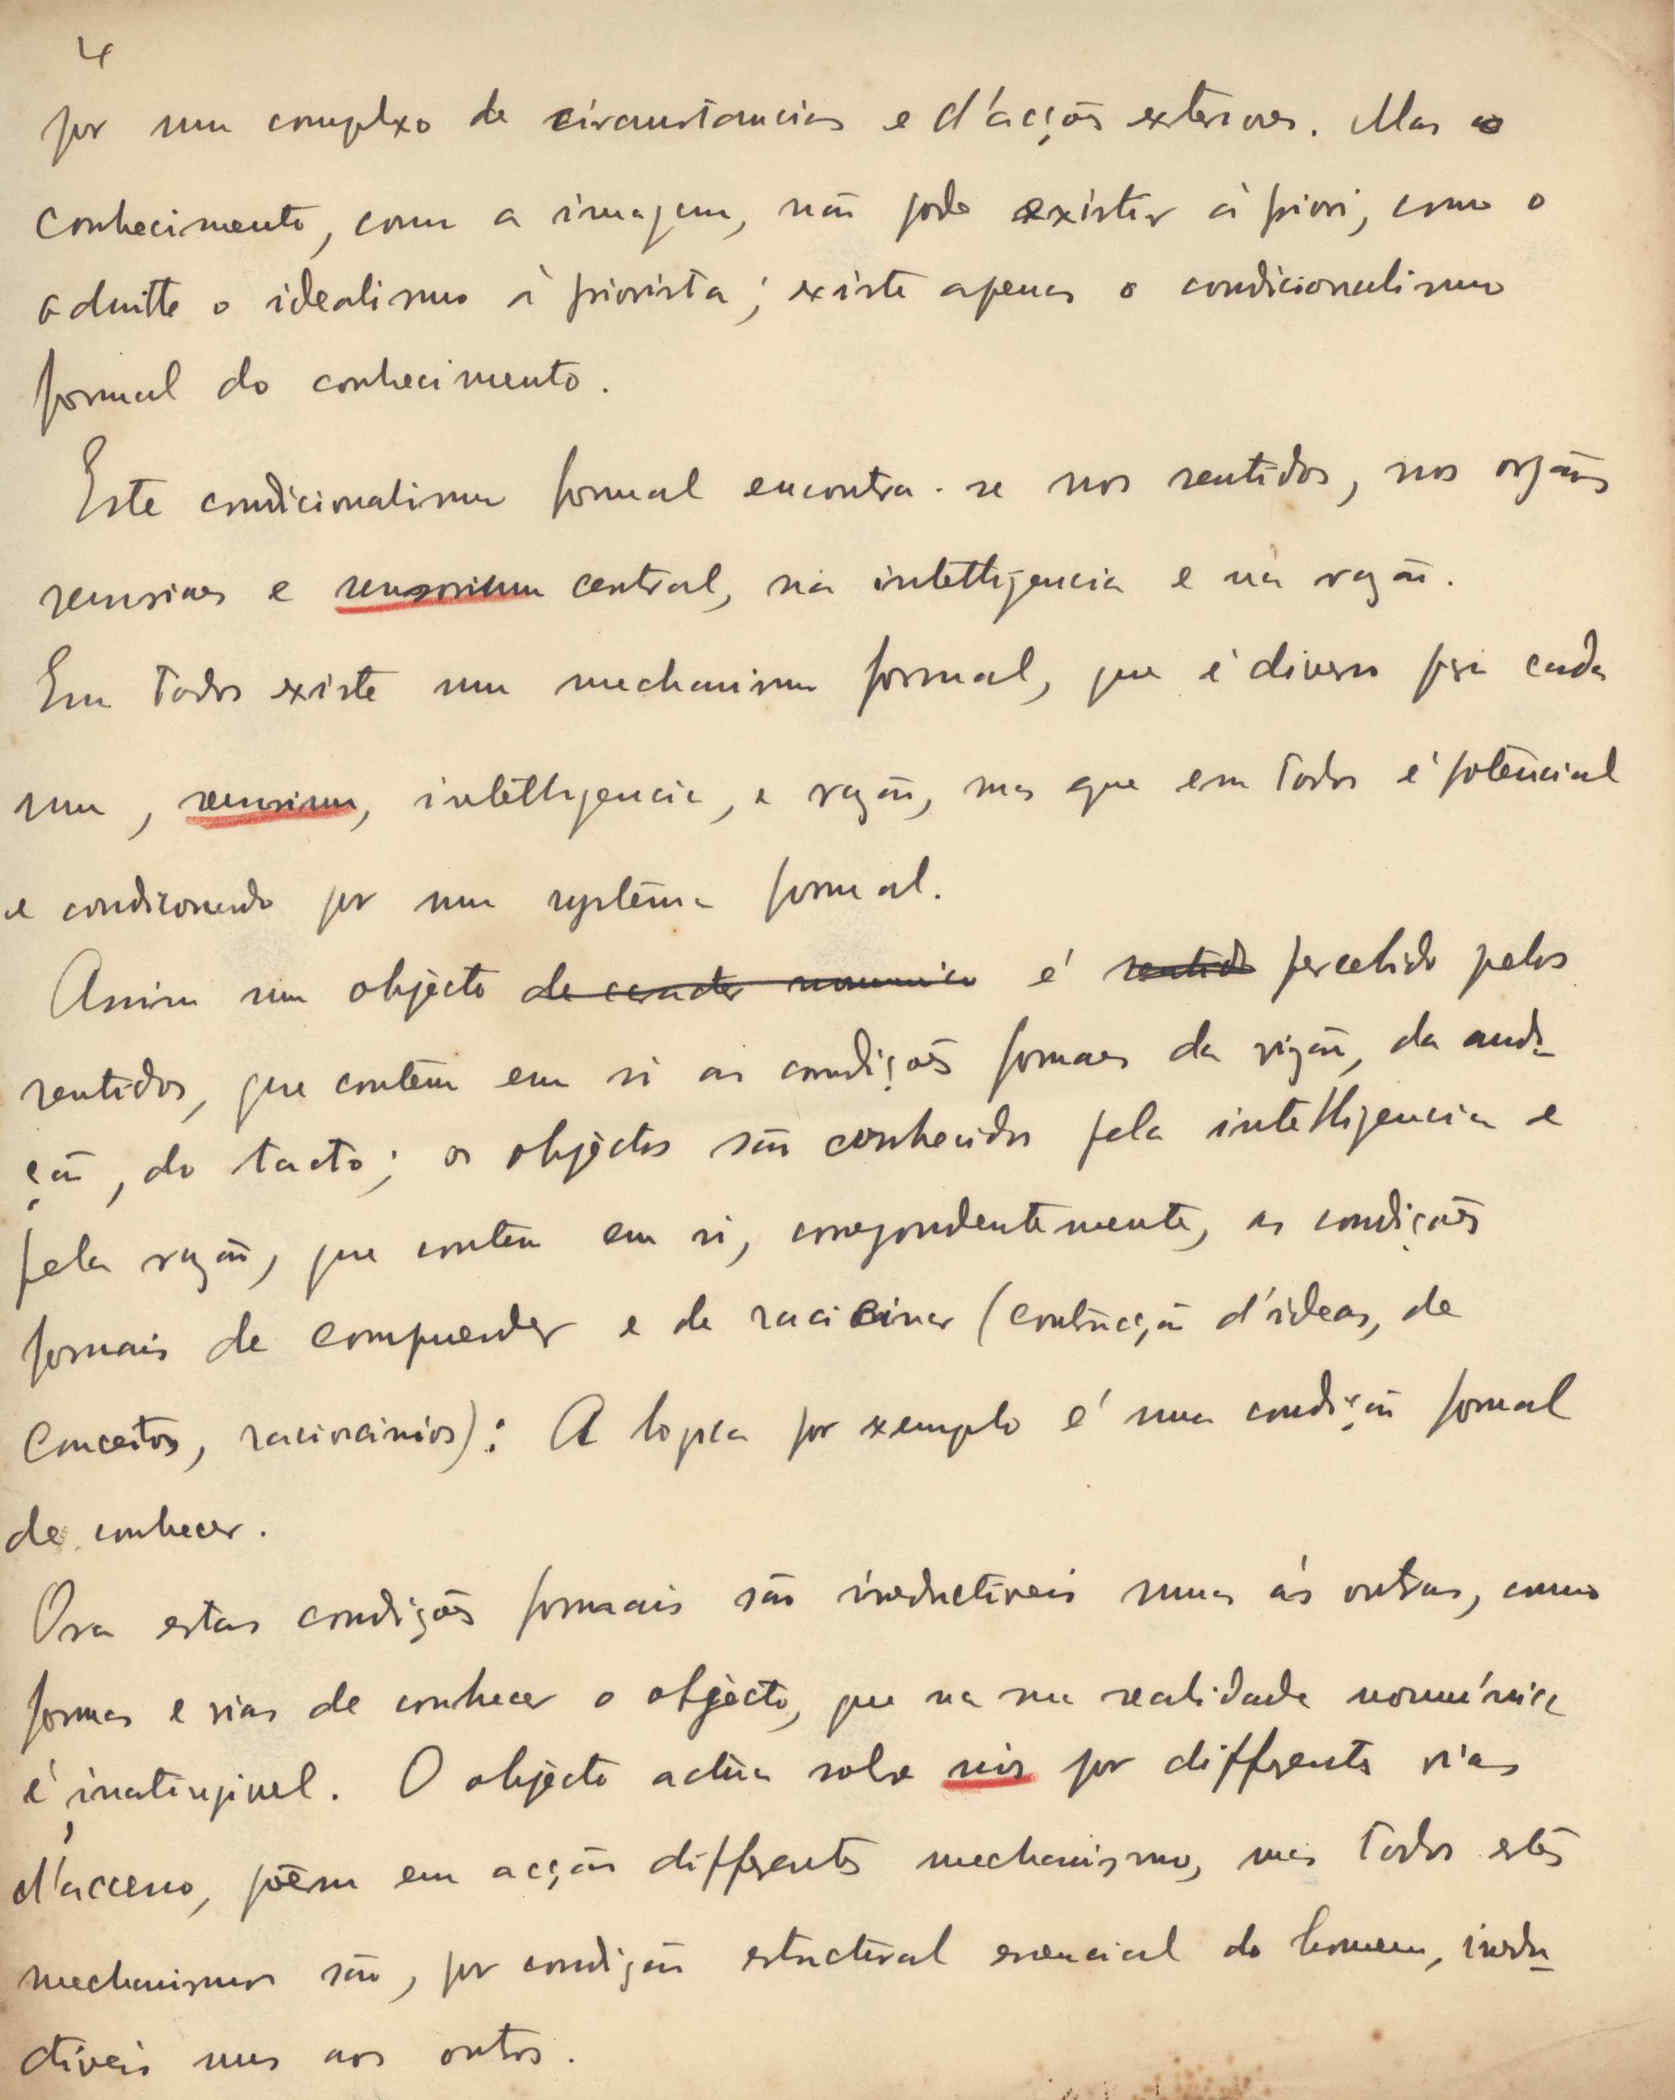 4
por um complexo de circunstancias e d'acções exteriores. Mas o
conhecimento, como a imagem, não pode existir à priori, como o
admitte o idealismo à priorista; existe apenas o condicionalismo
formal do conhecimento.
Este condicionalismo formal encontra-se nos sentidos, nos orgãos
sensoriaes e sensorium central, na intelligencia e na razão.
Em todos existe um mechanismo formal, que é diverso para cada
um, sensorium, intelligencia, e razão, mas que em todos é potêncial
e condicionado por um systêma formal.
Assim um objècto de caracter noumenico é sentido percebido pelos
sentidos, que contêm em si as condições formaes da visão, da audi-
ção, do tacto; os objèctos são conhecidos pela intelligencia e
pela razão, que contêm em si, correspondentemente, as condições
formais de comprender e de raciocinar (contrucção d'ideas, de
conceitos, raciocinios): A logica por exemplo é uma condição formal
de conhecer.
Ora estas condições formaais são irreductiveis umas ás outras, como
formas e vias de conhecer o objècto, que na sua realidade nouménica
é inatingivel. O objècto actúa sobre nós por differentes vias
d'accesso, põem em acção differentes mechanismos, mas todos estes
mechanismos são, por condição estructural essencial do homem, irredu-
ctiveis uns aos outros.